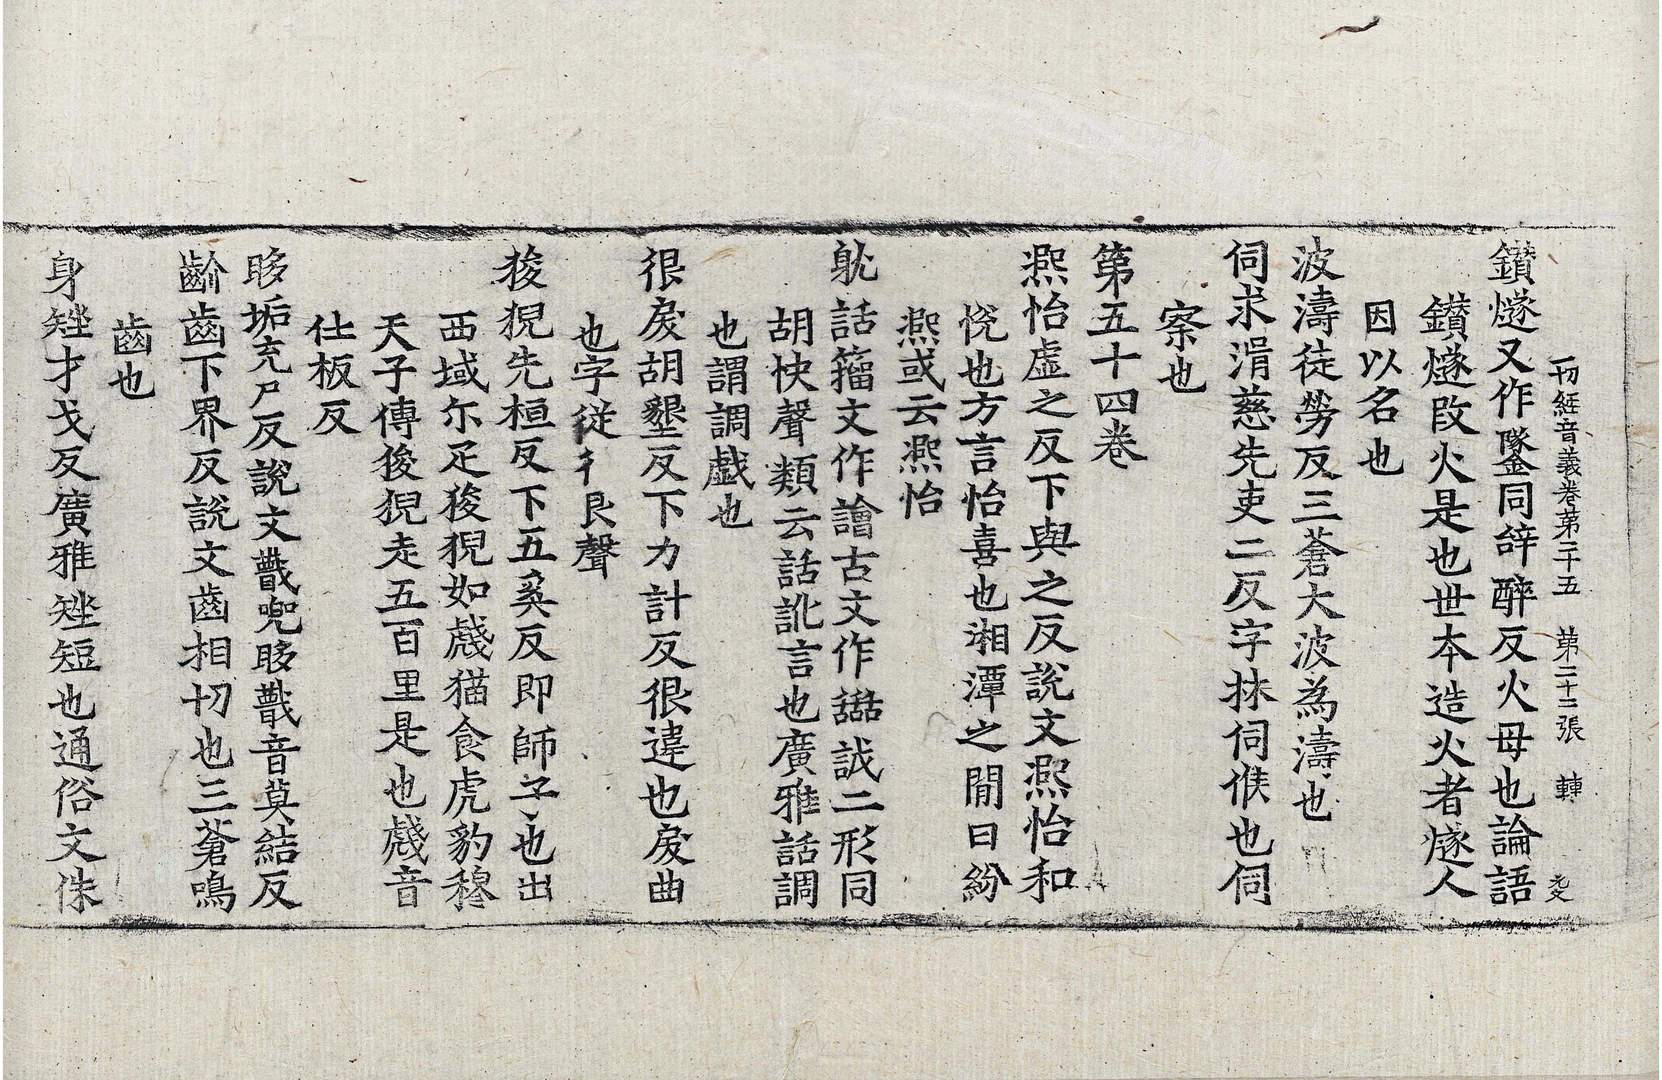 一切經音義卷第二十五 第二十三張 轉
鑽燧又作𨽌同辝醉反火母也論語
鑽燧改火是也世本造火者燧人
因以名也
波濤徒勞反三蒼大波為濤也
伺求涓慈先吏二反字林伺候也伺
察也
第五十四卷
熈怡虛之反下與之反說文熈怡和
恱也方言怡喜也湘潭之閒曰紛
熈或云熈怡
躭話籀文作譮古文作䛡䛍二形同
胡快聲類云話訛言也廣雅話調
也謂調戱也
很戾胡墾反下力計反很違也戾曲
也字從彳艮聲
狻猊先桓反下五奚反即師子也出
西域尒疋狻猊如虦猫食虎豹穆
天子傳狻猊走五百里是也虦音
仕板反
眵垢充尸反說文蕺兜眵蕺音莫結反
齘齒下界反說文齒相切也三蒼鳴
齒也
身矬才戈反廣雅矬短也通俗文侏